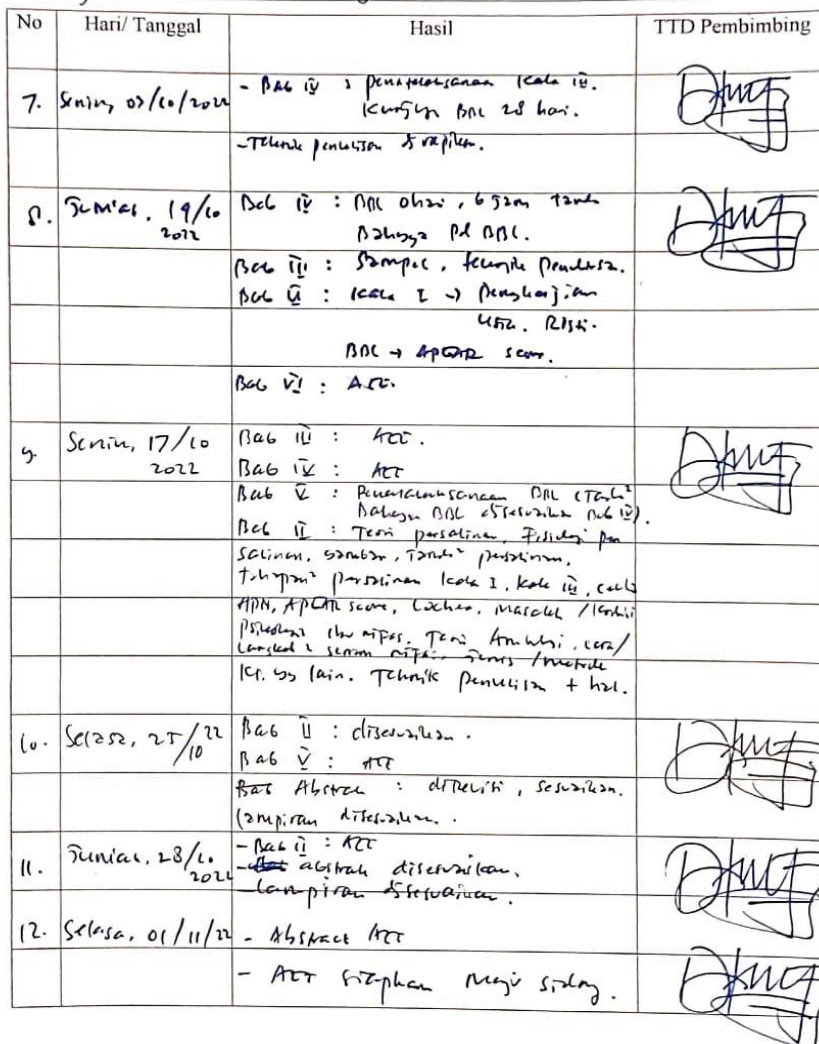 No Hari/ Tanggal Hasil TTD Pembimbing
7. Senin, 03/10/2022 - Bab IV : penatalaksanaan Kala III.
BBL 28 hari.
- Teknik penulisan dirapikan.
8. Jumat, 14/10 2022 Bab IV : BBL 0 hari, 6 jam tanda
Bahaya pd BBL.
Bab III : Sampel, teknik penulisan.
Bab II : Kala I → pengkajian
BBL → APGAR score.
Bab VI : ACC.
9. Senin, 17/10 2022 Bab III : ACC.
Bab IV : ACC
Bab V : Penatalaksanaan BBL (Tanda²
Bahaya BBL disesuaikan Bab IV).
Bab II : Teori persalinan, Fisiologi per
salinan, gambar, Tanda² persalinan,
tahapan² persalinan Kala I, Kala III,
APN, APGAR score, Lochea, masalah /
Psikologi ibu nifas, Teori , cara/
langkah² senam nifas, Jenis /metode
KB yg lain. Teknik penulisan + hal.
10. Selasa, 25/10 22 Bab II : disesuaikan.
Bab V : ACC
Bab Abstrak : direvisi, sesuaikan.
Lampiran disesuaikan.
11. Jumat, 28/10 2022 - Bab II : ACC
- abstrak disesuaikan.
- lampiran disesuaikan.
12. Selasa, 01/11/22 - Abstract ACC
- ACC siapkan maju sidang.